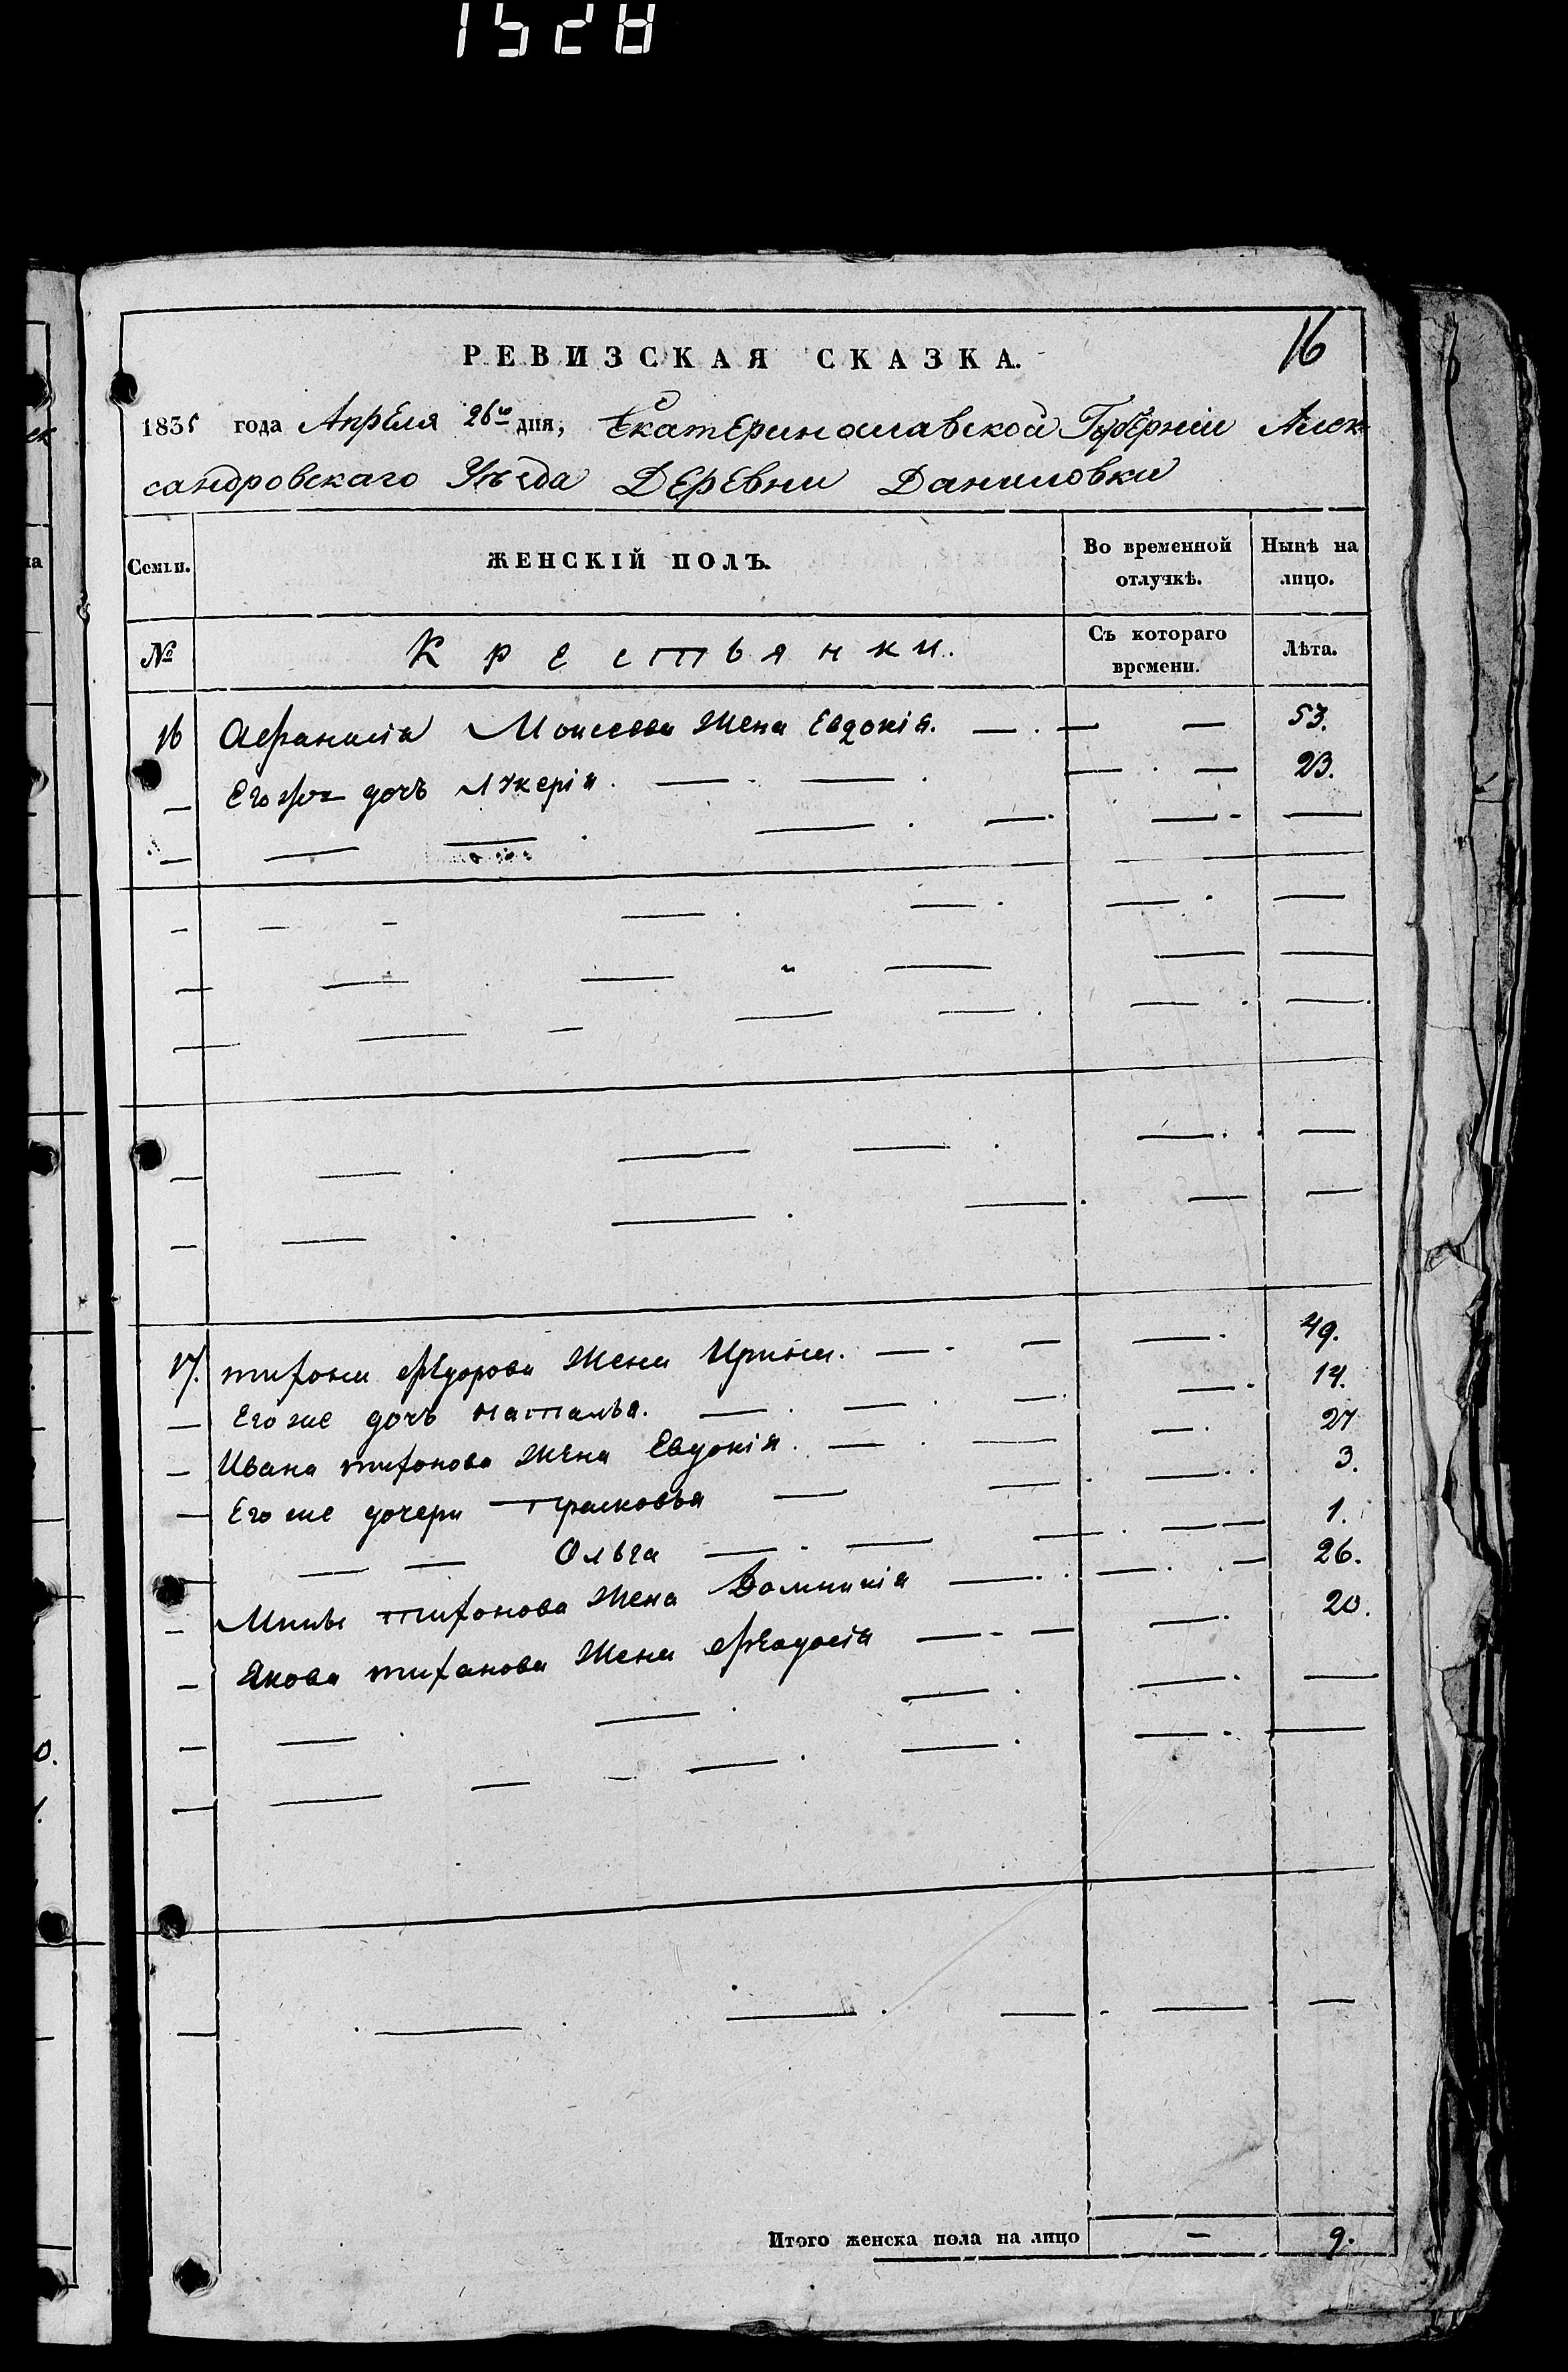 1528
16
РЕВИЗСКАЯ СКАЗКА.
1835 года Апреля 26го дня, Екатеринославской Губерніи Алек-
сандровскаго Уѣзда Деревни Даниловки
Семьи. ЖЕНСКІЙ ПОЛЪ. Во временной отлучкѣ. Нынѣ на лицо.
№ Крестьянки. Съ котораго времени. Лѣта.
16 Афанасія Моисеева жена Евдокія. — . — — 53.
— Егоже дочь Лукерія. — . — . — . — 23.
17. тихона Федорова жена Ирина. — . — — . 49.
— Его же дочь наталья. — . — . — . — . 14.
— Ивана тихонова жена Евдокія. — . — — . 27
— Его же дочери Прасковья — — . — . . 3.
— — — Ольга — . — — . — — 1.
— Мины тихонова жена Домникія — . . — . . — 26.
— Якова тиханова жена Феодосія — - — — . 20.
Итого женска пола на лицо — 9.